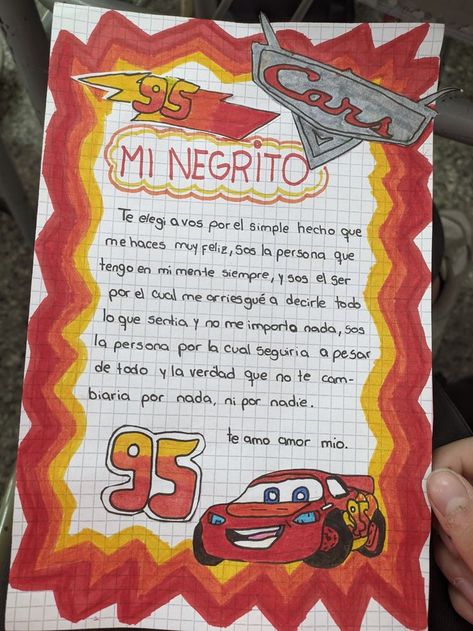 95
Cars
MI NEGRITO
Te elegi a vos por el simple hecho que
me haces muy feliz, sos la persona que
tengo en mi mente siempre, y sos el ser
por el cual me arriesgué a decirle todo
lo que sentia y no me importo nada, sos
la persona por la cual seguiria a pesar
de todo y la verdad que no te cam-
biaria por nada, ni por nadie.
te amo amor mio.
95
95